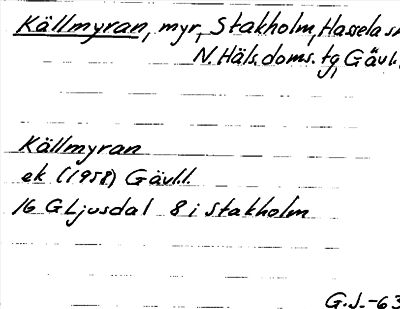 Källmyran, myr, Stakholm, Hassela sn
N. Häls. doms. tg, Gävl.
Källmyran
ek (1958) Gävl.l.
16 G Ljusdal 8 i Stakholm
G.J.-63